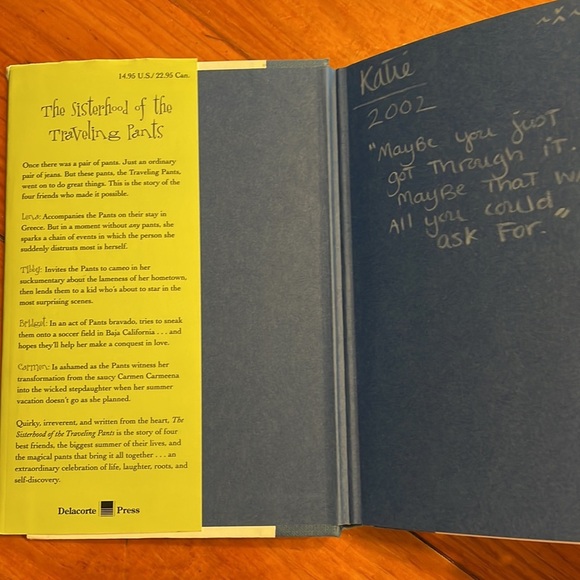 14.95 U.S./ 22.95 Can.
The Sisterhood of the
Traveling Pants
Once there was a pair of pants. Just an ordinary
pair of jeans. But these pants, the Traveling Pants,
went on to do great things. This is the story of the
four friends who made it possible.
Lena: Accompanies the Pants on their stay in
Greece. But in a moment without any pants, she
sparks a chain of events in which the person she
suddenly distrusts most is herself.
Tibby: Invites the Pants to cameo in her
suckumentary about the lameness of her hometown,
then lends them to a kid who's about to star in the
most surprising scenes.
Bridget: In an act of Pants bravado, tries to sneak
them onto a soccer field in Baja California . . . and
hopes they'll help her make a conquest in love.
Carmen: Is ashamed as the Pants witness her
transformation from the saucy Carmen Carmeena
into the wicked stepdaughter when her summer
vacation doesn't go as she planned.
Quirky, irreverent, and written from the heart, The
Sisterhood of the Traveling Pants is the story of four
best friends, the biggest summer of their lives, and
the magical pants that bring it all together . . . an
extraordinary celebration of life, laughter, roots, and
self-discovery.
Delacorte Press
Katie
2002
"Maybe you just
got Through iT.
Maybe That wa
All you could
ask For."